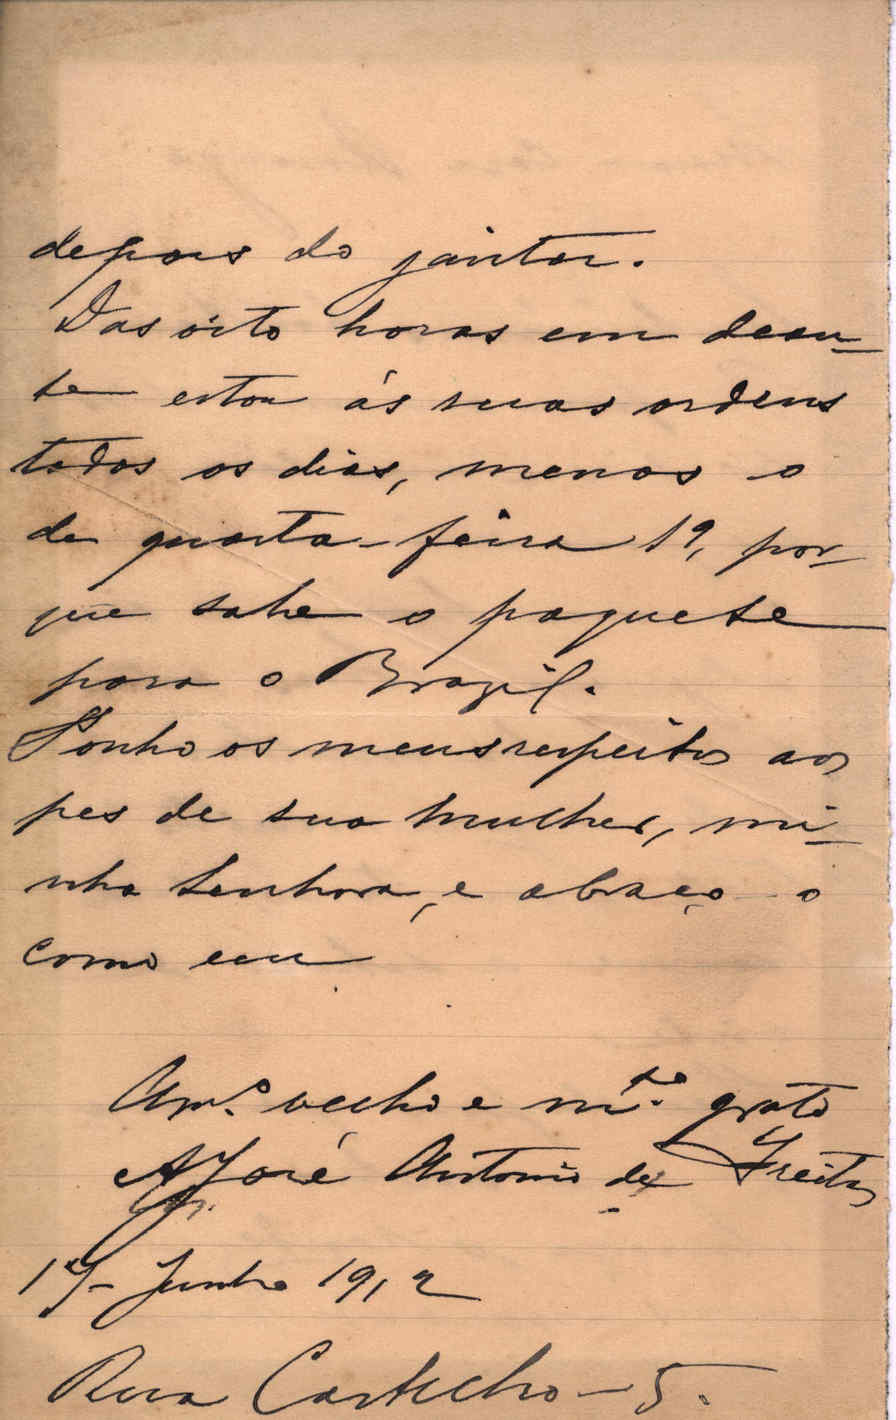 depois do jantar.
Das oito horas em dean-
te estou ás suas ordens
todos os dias, menos o
de quarta-feira 19, por-
que sahe o paquete
para o Brazil.
Ponho os meus respeitos aos
pes de sua mulher, mi-
nha Senhora, e abraço-o
como seu
Amº. velho e mtº. grato
José Antonio de Freitas
17- Junho 1912
Rua Castilho - 5.